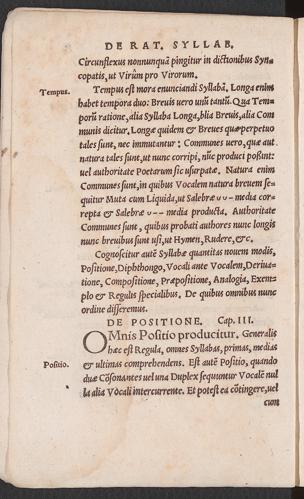 DE RAT. SYLLAB.
Circunflexus nonnunquã pingitur in dictionibus Syn-
copatis, ut Virûm pro Virorum.
Tempus.
Tempus est mora enunciandi Syllabã. Longa enim
habet tempora duo: Breuis uero unũ tantũ. Qua Tem-
porũ ratione, alia Syllaba Longa, alia Breuis, alia Com
munis dicitur. Longæ quidem & Breues quæ perpetuo
tales sunt, nec immutantur: Communes uero, quæ aut
natura tales sunt, ut nunc corripi, nũc produci possint:
uel authoritate Poetarum sic usurpatæ. Natura enim
Communes sunt, in quibus Vocalem natura breuem se-
quitur Muta cum Liquida, ut Salebræ ᴗᴗ– media cor-
repta & Salebræ ᴗ–– media producta. Authoritate
Communes sunt, quibus probati authores nunc longis
nunc breuibus sunt usi, ut Hymen, Rudere, &c.
Cognoscitur autẽ Syllabæ quantitas nouem modis,
Positione, Diphthongo, Vocali ante Vocalem, Deriua-
tione, Compositione, Præpositione, Analogia, Exem-
plo & Regulis specialibus. De quibus omnibus nunc
ordine disseremus.
DE POSITIONE. Cap. III.
OMnis Positio producitur. Generalis
hæc est Regula, omnes Syllabas, primas, medias
Positio.
& ultimas comprehendens. Est autẽ Positio, quando
duæ Cõsonantes uel una Duplex sequuntur Vocalẽ nul
la alia Vocali intercurrente. Et potest ea cõtingere, uel
cum